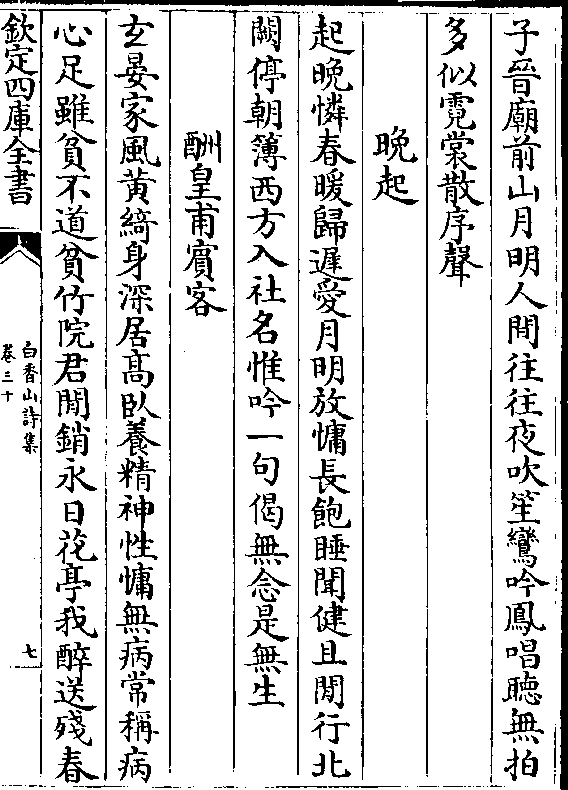 子晉廟前山月明人間往往夜吹笙鸞吟鳳唱聽無拍
多似霓裳散序聲
晚起
起晚憐春暖歸遲愛月明放慵長飽睡聞健且閒行北
闕停朝簿西方入社名惟吟一句偈無念是無生
酬皇甫賓客
玄晏家風黃綺身深居高臥養精神性慵無病常稱病
心足雖貧不道貧竹院君閒銷永日花亭我醉送殘春
欽定四庫全書
白香山詩集
卷三十
七